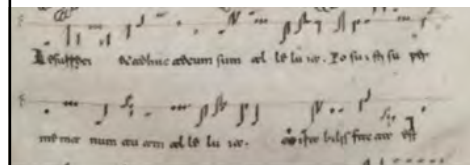 Resurrexi & adhuc tecum sum al le lu ia. Po su i sti su per
me ma num tu am al le lu ia. mi ra bilis fac ta est